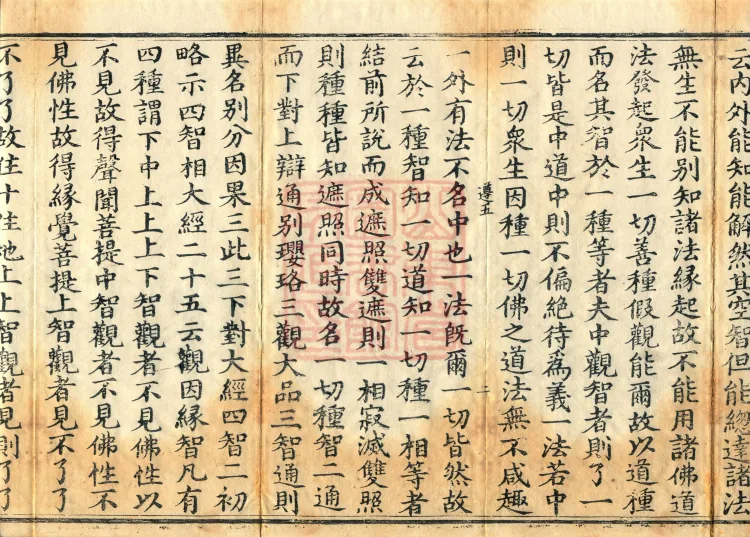 云內外能知能解然其空智但能總達諸法
無生不能別知諸法緣起故不能用諸佛道
法發起衆生一切善種假觀能爾故以道種
而名其智於一種等者夫中觀智者則了一
切皆是中道中則不偏絕待爲義一法若中
則一切衆生因種一切佛之道法無不咸趣
遵五
二
一外有法不名中也一法旣爾一切皆然故
云於一種智知一切道知一切種一相等者
結前所說而成遮照雙遮則一相寂滅雙照
則種種皆知遮照同時故名一切種智二通
而下對上辯通別瓔珞三觀大品三智通則
異名別分因果三此三下對大經四智二初
略示四智相大經二十五云觀因緣智凡有
四種謂下中上上上下智觀者不見佛性以
不見故得聲聞菩提中智觀者不見佛性不
見佛性故得緣覺菩提上智觀者見不了了
不了了故住十住地上上智觀者見則了了